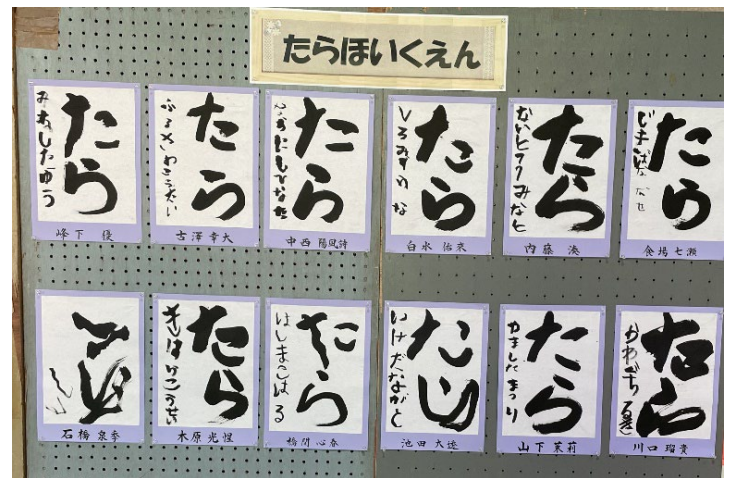 たらほいくえん
たら
みねしたゆう
峰下 優
たら
古澤 幸大
たら
なかにしひなた
中西 陽風詩
たら
しろみずゆな
白水 佑來
たら
ないとうみなと
内藤 湊
たら
じきばななせ
食場 七瀬
石橋 泉季
たら
きはらこうせい
木原 光惺
たら
はしまこはる
橋間 心春
たら
いけだながと
池田 大遼
たら
やましたまつり
山下 茉莉
たら
かわぐちるき
川口 瑠貴